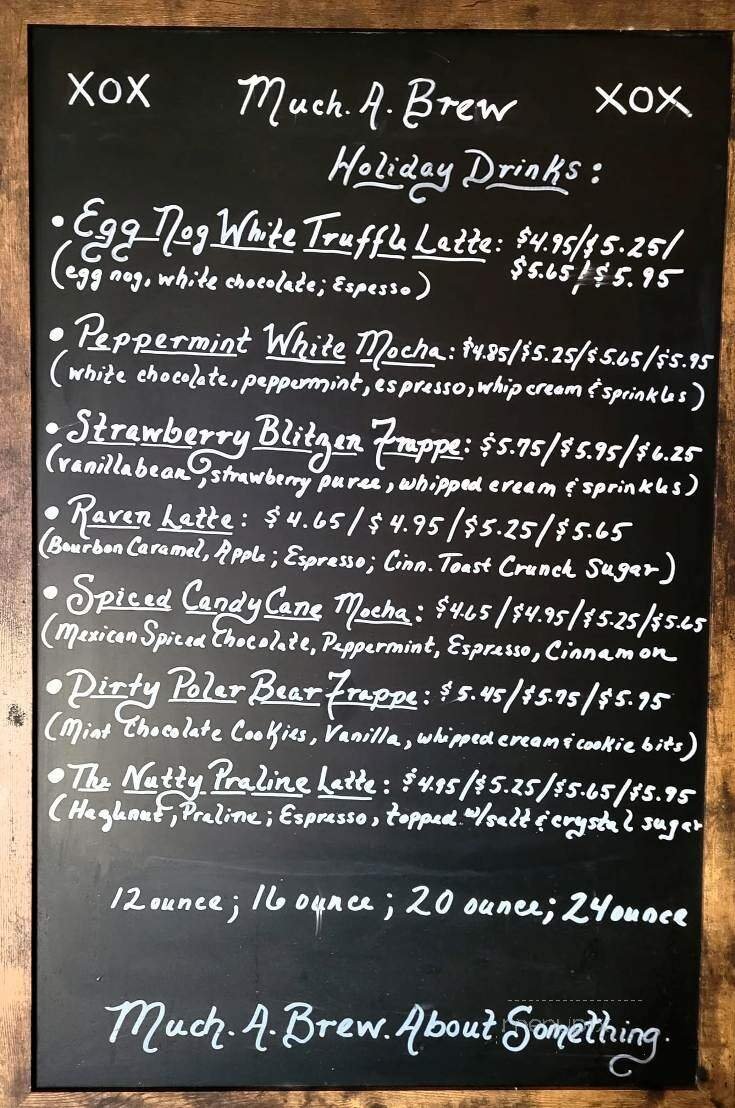 XOX Much. A. Brew XOX
Holiday Drinks:
• Egg Nog White Truffle Latte: $4.95/$5.25/
$5.65/$5.95
(egg nog, white chocolate; Espesso)
• Peppermint White Mocha: $4.85/$5.25/$5.65/$5.95
(white chocolate, peppermint, espresso, whip cream & sprinkles)
• Strawberry Blitzen Frappe: $5.75/$5.95/$6.25
(vanilla bean, strawberry puree, whipped cream & sprinkles)
• Raven Latte: $4.65/$4.95/$5.25/$5.65
(Bourbon Caramel, Apple; Espresso; Cinn. Toast Crunch Sugar)
• Spiced Candy Cane Mocha: $4.65/$4.95/$5.25/$5.65
(Mexican Spiced Chocolate, Peppermint, Espresso, Cinnamon
• Dirty Polar Bear Frappe: $5.45/$5.75/$5.95
(Mint Chocolate Cookies, Vanilla, whipped cream & cookie bits)
• The Nutty Praline Latte: $4.95/$5.25/$5.65/$5.95
(Hazlenut, Praline; Espresso, topped w/salt & crystal sugar
12 ounce; 16 ounce; 20 ounce; 24 ounce
Much. A. Brew. About Something.